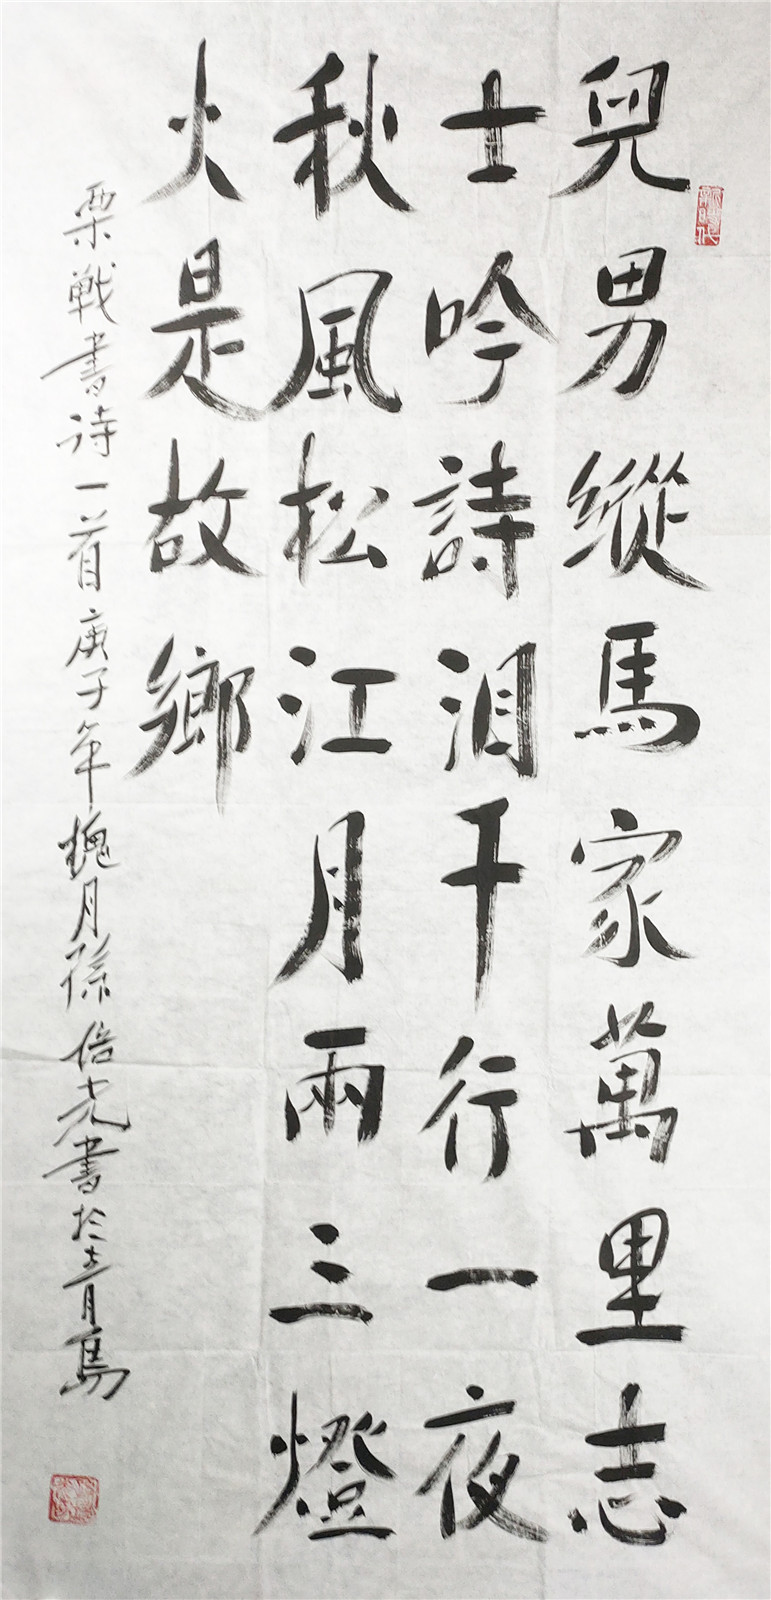 兒男縱馬家萬里志
士吟詩淚千行一夜
秋風松江月兩三燈
火是故鄉
栗戰書诗一首庚子年槐月孫信光書於青島